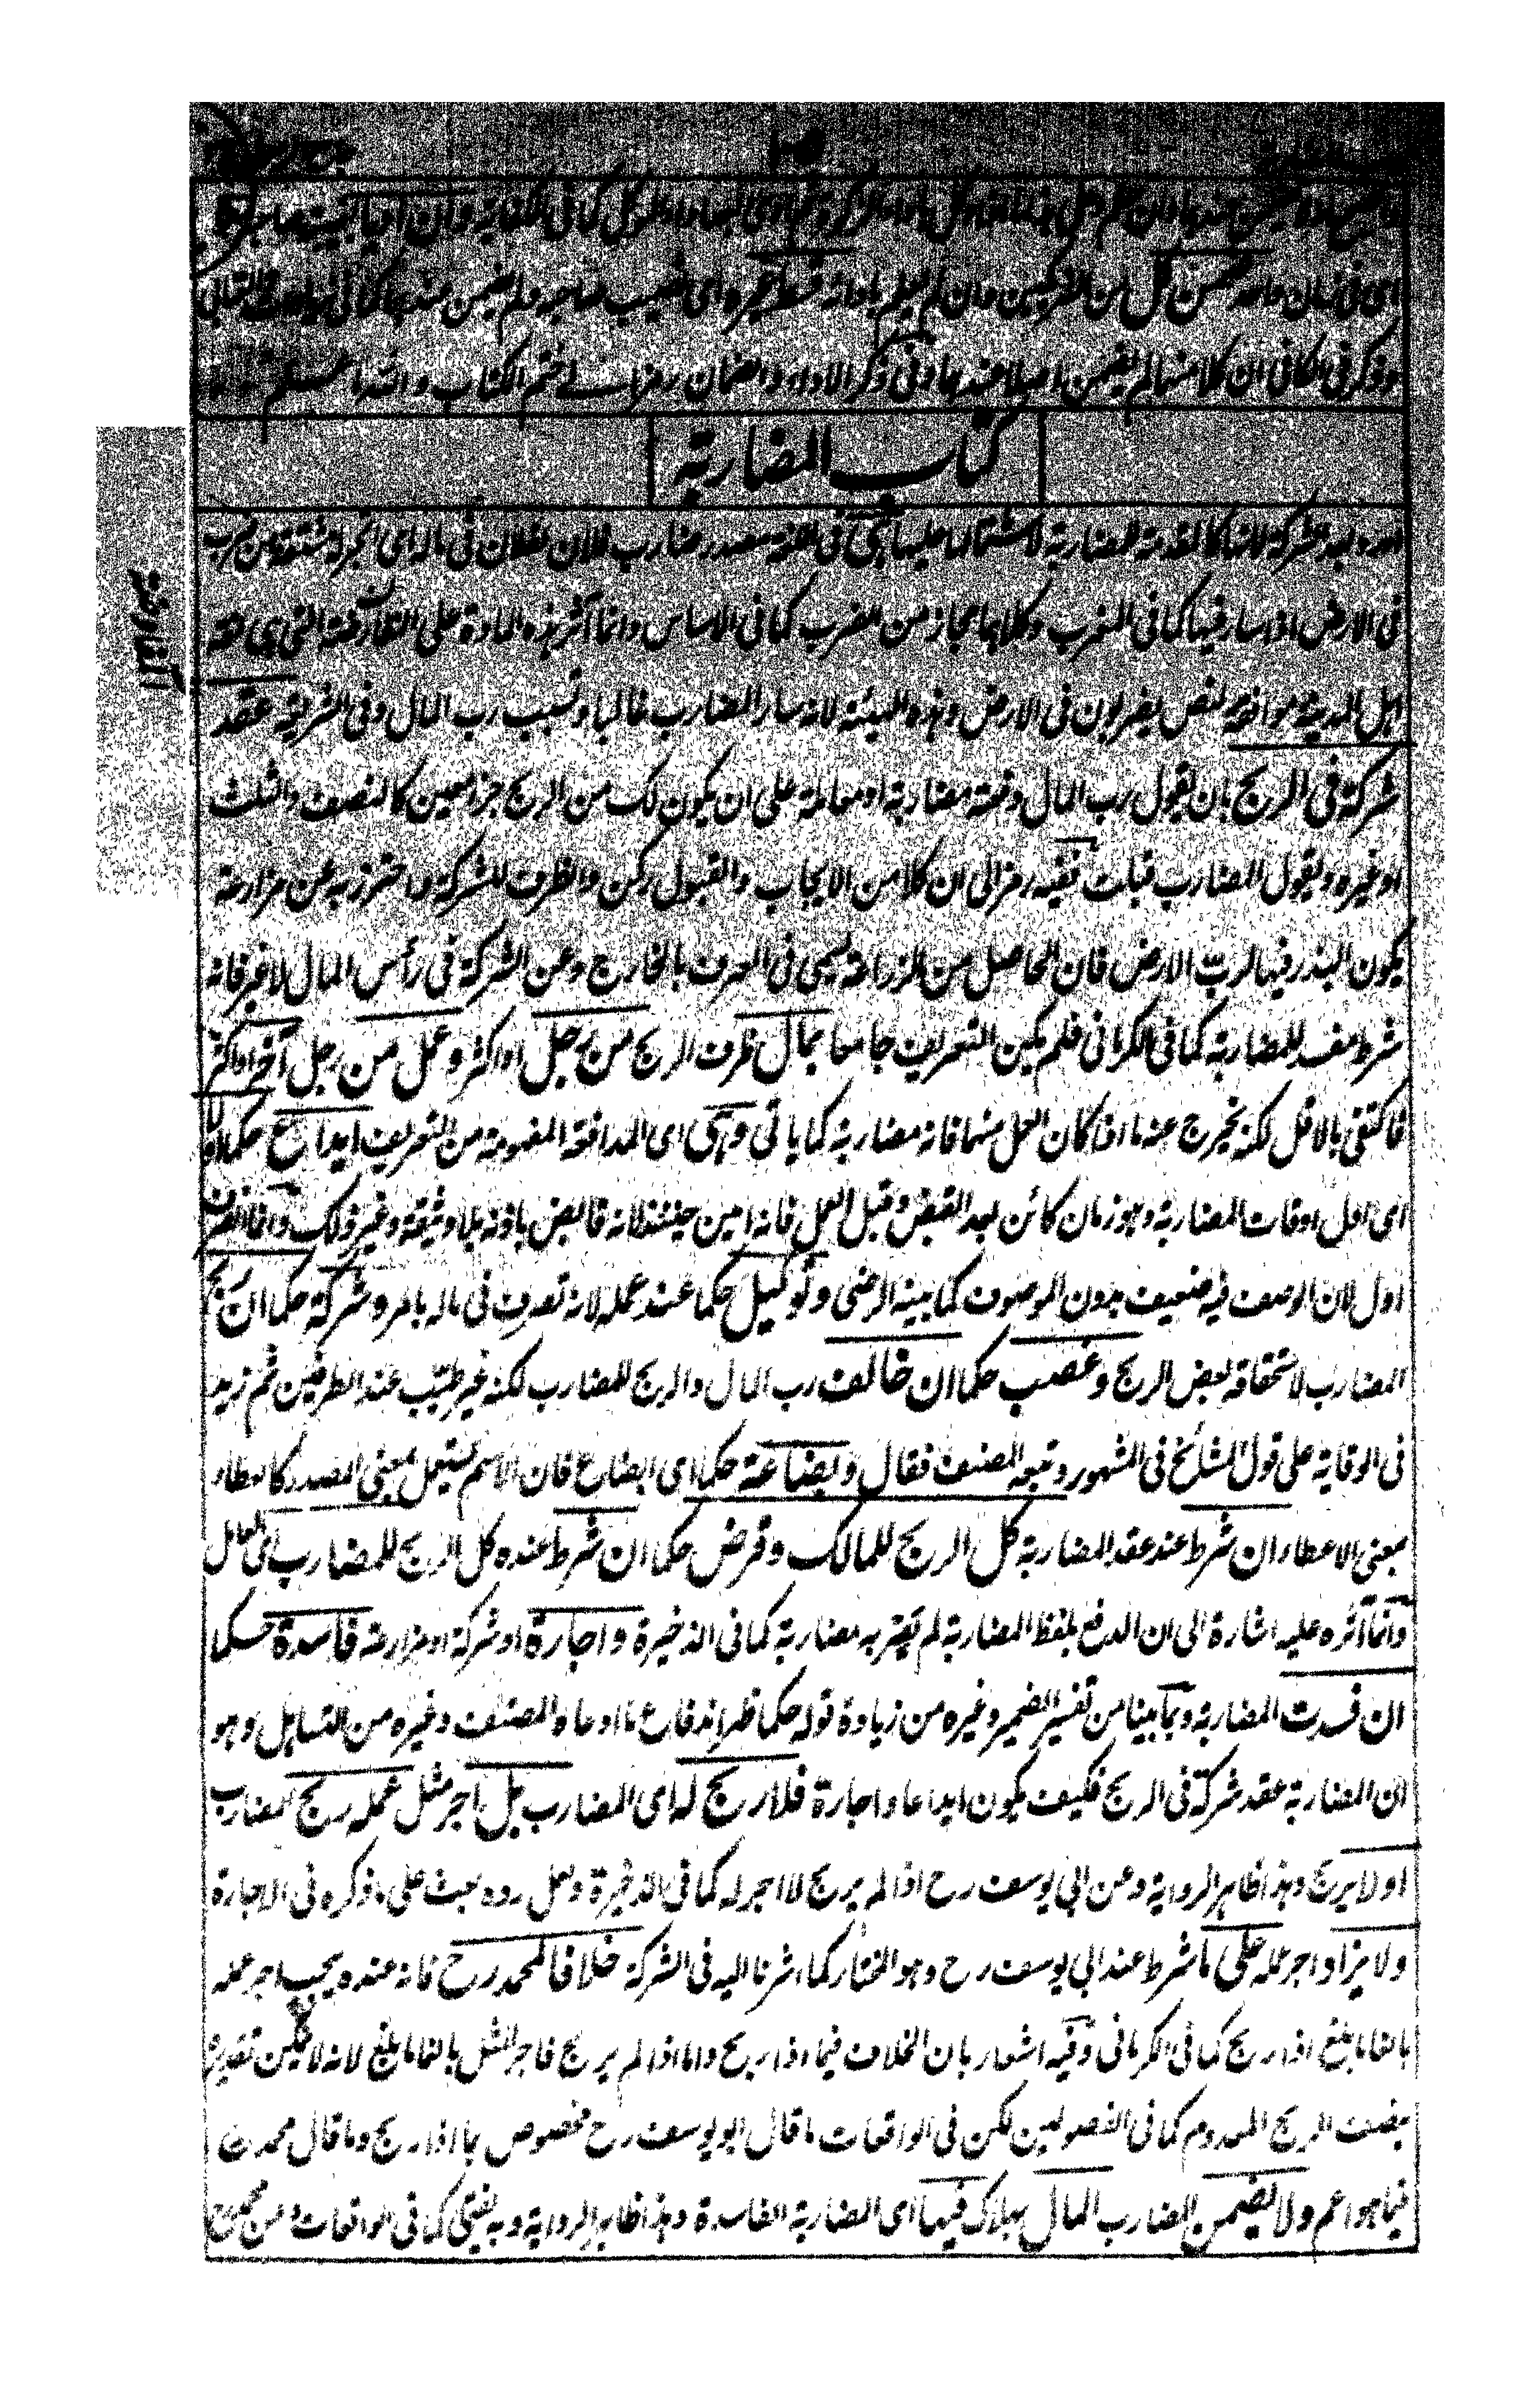 وذكر فى الكافى ان كلا منهما لم يضمن اصلا عندهما وفى ذكر الاداء والضمان رمز الى ختم الكتاب والله اعلم
كتاب المضاربة
اورده بعد الشركة لانها كالمقدمة للمضاربة لاشتمالها عليها هى فى اللغة مصدر ضارب فلان لفلان فى ماله اى اتجر له مشتقة من ضرب
فى الارض اذا سار فيها كما فى المغرب وكلاهما مجاز من الضرب كما فى الاساس وانما آثر هذه المادة على المقارضة التى هى لغة
اهل المدينة موافقة لنص يضربون فى الارض وهذه الهيئة لانه سار المضارب غالبا وتسبب رب المال وفى الشريعة عقد
شركة فى الربح بان يقول رب المال دفعته مضاربة او معاملة على ان يكون لك من الربح جزء معين كالنصف والثلث
او غيره ويقول المضارب قبلت ففيه رمز الى ان كلا من الايجاب والقبول ركن والظرف للشركة واحترز به عن مزارعة
يكون البذر فيها لرب الارض فان الحاصل من الزراعة يسمى فى العرف بالخارج وعن الشركة فى رأس المال لا غير فانه
شرط مفسد للمضاربة كما فى الكرمانى فلم يكن التعريف جامعا بمال ظرف الربح من رجل او اكثر وعمل من رجل آخر او اكثر
فاكتفى بالاقل لكنه يخرج عنه ما اذا كان العمل منهما فانه مضاربة كما يأتى وهى اى المدافعة المفهومة من التعريف ايداع حكما اولا
اى اول اوقات المضاربة وهو زمان كائن بعد القبض وقبل العمل فانه امين حينئذ لانه قابض باذنه بلا وثيقة وغير ذلك وانما انصرف
اول لان الوصف فيه ضعيف بدون الموصوف كما بينه الرضى وتوكيل حكما عند عمله لانه تصرف فى ماله بامره وشركة حكما ان ربح
المضارب لاستحقاقه بعض الربح وغصب حكما ان خالف رب المال والربح للمضارب لكنه غير طيب عند الطرفين ثم زيد
فى الوقاية على قول المشائخ فى المشهور وتبعه المصنف فقال وبضاعة حكما اى ابضاع فان الاسم يستعمل بمعنى المصدر كالعطاء
بمعنى الاعطاء ان شرط عند عقد المضاربة كل الربح للمالك وقرض حكما ان شرط عنده كل الربح للمضارب اى العامل
وانما آثره عليه اشارة الى ان الدفع بلفظ المضاربة لم يصر به مضاربة كما فى الذخيرة واجارة او شركة او مزارعة فاسدة حكما
ان فسدت المضاربة وبما بينا من تفسير الضمير وغيره من زيادة قوله حكما ظهر اندفاع ما ادعاه المصنف وغيره من التساهل وهو
ان المضاربة عقد شركة فى الربح فكيف يكون ايداعا واجارة فلا ربح له اى المضارب بل اجر مثل عمله ربح المضارب
او لا يربح وهذا ظاهر الرواية وعن ابى يوسف رح اذا لم يربح لا اجر له كما فى الذخيرة ولعل رده بعث على ذكره فى الاجارة
ولا يزاد اجر عمله على ما شرط عند ابى يوسف رح وهو المختار كما اشرنا اليه فى الشركة خلافا لمحمد رح فانه عنده يجب اجر عمله
بالغا ما بلغ اذا ربح كما فى الكرمانى وفيه اشعار بان الخلاف فيما اذا ربح واما اذا لم يربح فاجر المثل بالغا ما بلغ لانه لا يمكن تقديره
بنصف الربح المعدوم كما فى الفصولين لكن فى الواقعات ما قال ابو يوسف رح مخصوص بما اذا ربح وما قال محمد رح
فيما هو اعم ولا يضمن المضارب المال بهلاك فيها اى المضاربة الفاسدة وهذا ظاهر الرواية وبه يفتى كما فى الواقعات وعن محمد